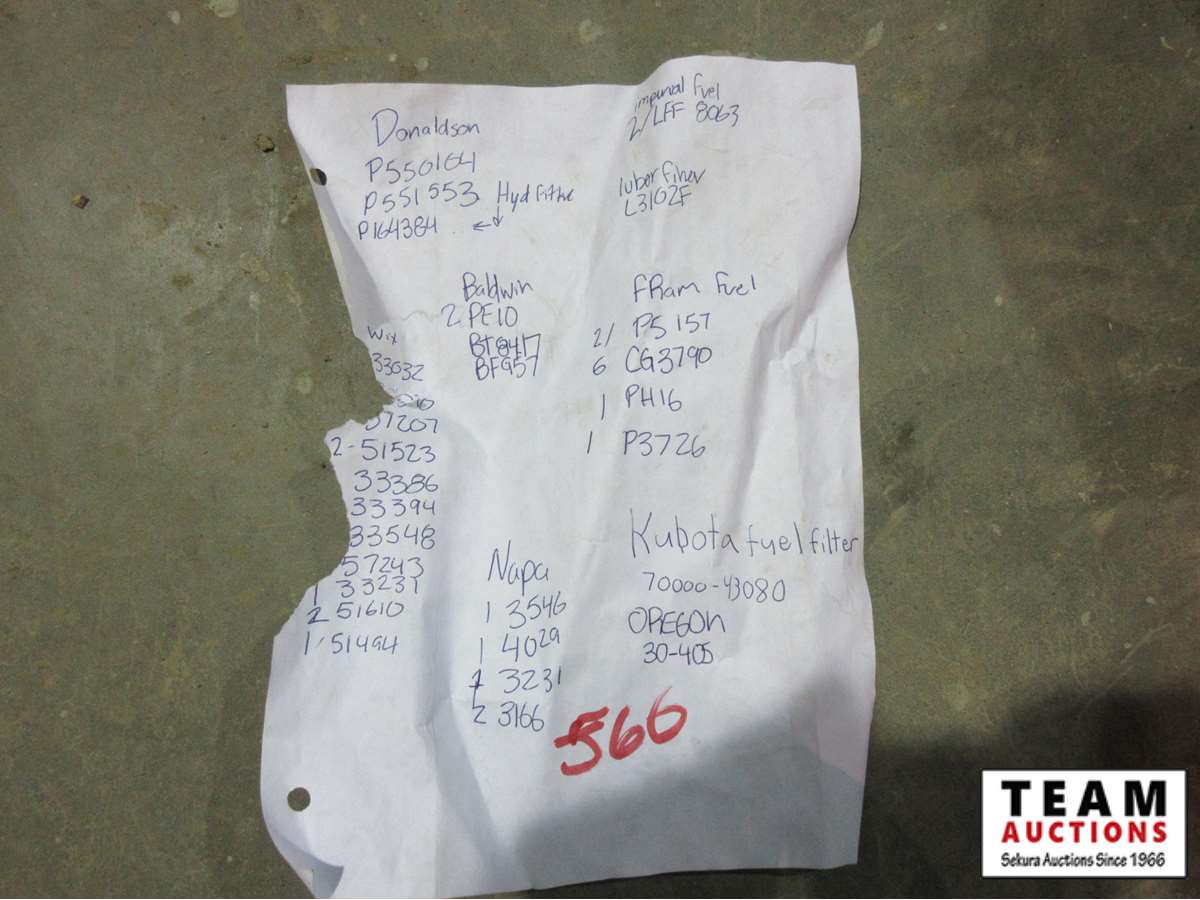 Donaldson
P550164
P551553 Hyd
P164384
Imperial Fuel
2/LFF 8063
luber finer
L3102F
Baldwin
2 PE10
BT8417
BF957
FRam Fuel
2/ PS 157
6 CG3790
1 PH16
1 P3726
Wix
33032
57207
2-51523
33386
33394
33548
57243
1 33231
2 51610
1/51494
Napa
1 3546
1 4029
1 3231
2 3166
Kubota fuel filter
70000-43080
OREGON
30-405
566
TEAM
AUCTIONS
Sekura Auctions Since 1966